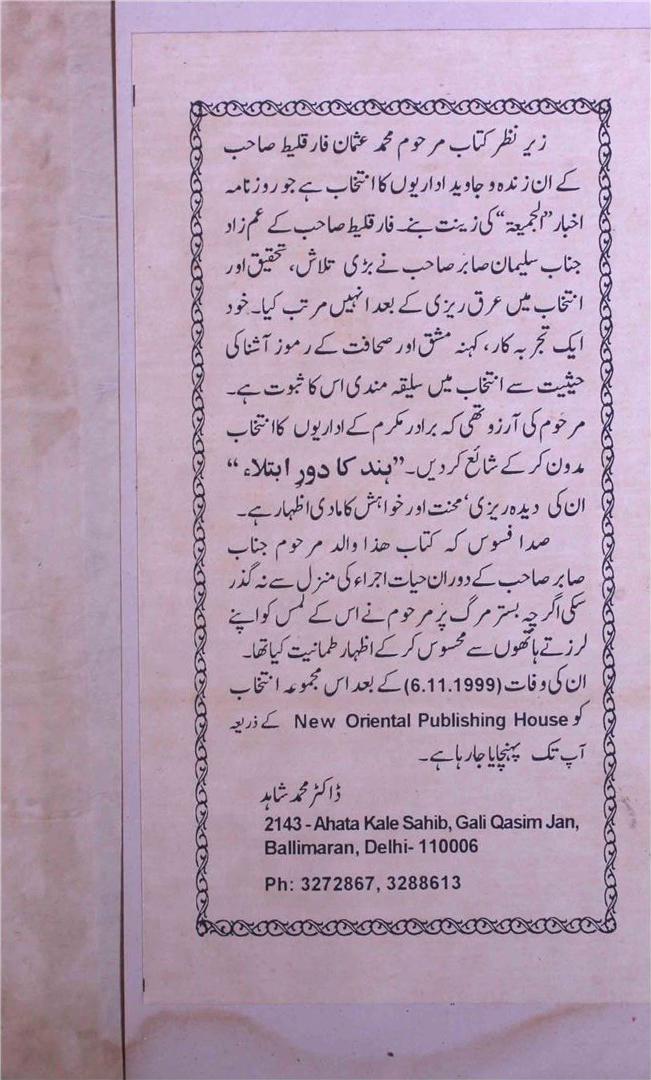 زیر نظر کتاب مرحوم محمد عثمان فارقلیط صاحب
کے ان زندہ و جاوید اداریوں کا انتخاب ہے جو روزنامہ
اخبار ”الجمیعۃ“ کی زینت بنے۔ فارقلیط صاحب کے عم زاد
جناب سلیمان صابر صاحب نے بڑی تلاش، تحقیق اور
انتخاب میں عرق ریزی کے بعد انہیں مرتب کیا۔ خود
ایک تجربہ کار، کہنہ مشق اور صحافت کے رموز آشنا کی
حیثیت سے انتخاب میں سلیقہ مندی اس کا ثبوت ہے۔
مرحوم کی آرزو تھی کہ برادر مکرم کے اداریوں کا انتخاب
مدون کر کے شائع کر دیں۔ ”ہند کا دورِ ابتلاء“
ان کی دیدہ ریزی، محنت اور خواہش کا مادی اظہار ہے۔
صد افسوس کہ کتاب ھذا والد مرحوم جناب
صابر صاحب کے دوران حیات اجراء کی منزل سے نہ گذر
سکی اگرچہ بستر مرگ پر مرحوم نے اس کے لمس کو اپنے
لرزتے ہاتھوں سے محسوس کر کے اظہار طمانیت کیا تھا۔
ان کی وفات (6.11.1999) کے بعد اس مجموعہ انتخاب
کو New Oriental Publishing House کے ذریعہ
آپ تک پہنچایا جا رہا ہے۔
ڈاکٹر محمد شاہد
2143 - Ahata Kale Sahib, Gali Qasim Jan,
Ballimaran, Delhi- 110006
Ph: 3272867, 3288613